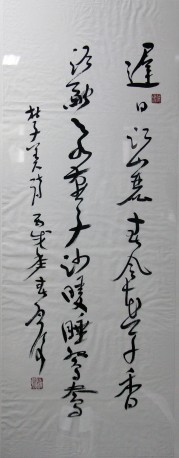 遲日江山麗春风花草香
泥融飞燕子沙暖睡鴛鴦
杜子美诗丙戌